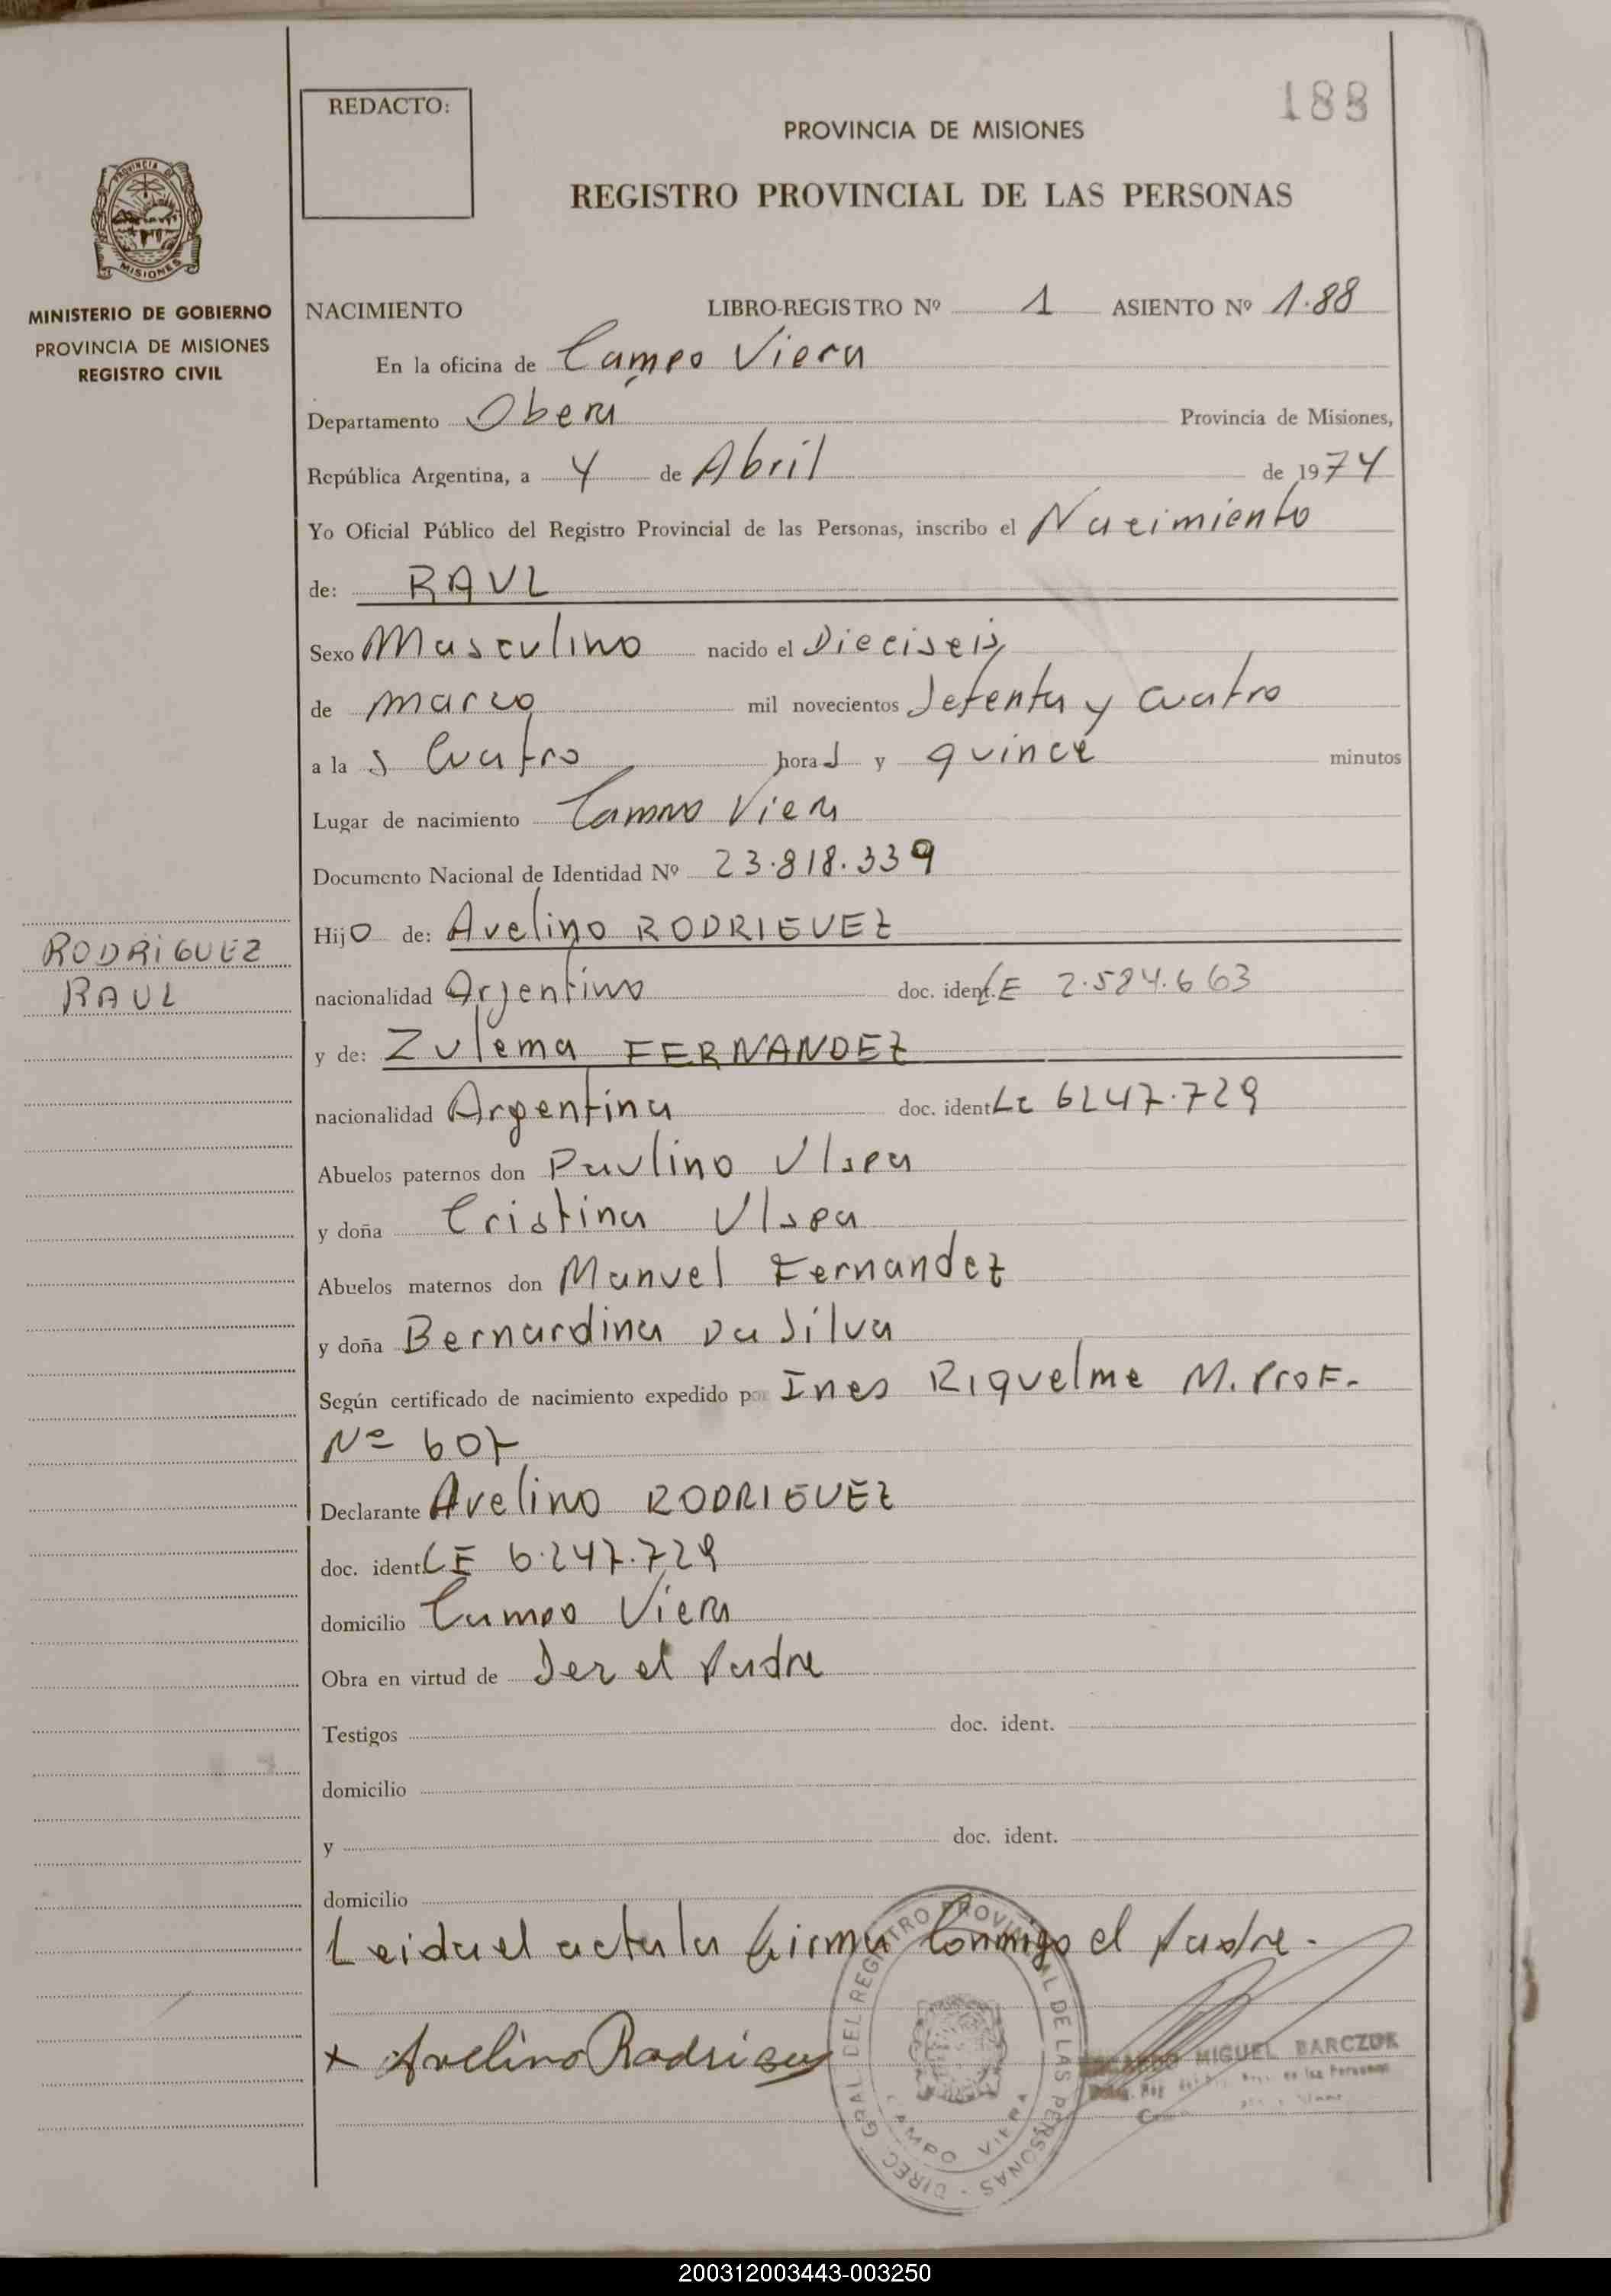 188
REDACTO:
PROVINCIA DE MISIONES
REGISTRO PROVINCIAL DE LAS PERSONAS
PROVINCIA DE MISIONES
MINISTERIO DE GOBIERNO
PROVINCIA DE MISIONES
REGISTRO CIVIL
NACIMIENTO LIBRO-REGISTRO Nº 1 ASIENTO Nº 1.88
En la oficina de Campo Viera
Departamento Obera Provincia de Misiones,
República Argentina, a 4 de Abril de 1974
Yo Oficial Público del Registro Provincial de las Personas, inscribo el Nacimiento
de: RAUL
Sexo Masculino nacido el Dieciseis
de marzo mil novecientos Setenta y cuatro
a la s Cuatro hora s y quince minutos
Lugar de nacimiento Campo Viera
Documento Nacional de Identidad Nº 23.818.339
Hijo de: Avelino RODRIGUEZ
RODRIGUEZ
RAUL
nacionalidad Argentino doc. ident. LE 2.584.663
y de: Zulema FERNANDEZ
nacionalidad Argentina doc. ident. LC 6247.729
Abuelos paternos don Paulino Ulspa
y doña Cristina Ulspa
Abuelos maternos don Manuel Fernandez
y doña Bernardina Da Silva
Según certificado de nacimiento expedido por Ines Riquelme M. Prof.
Nº 607
Declarante Avelino RODRIGUEZ
doc. ident. LE 6.247.729
domicilio Campo Viera
Obra en virtud de Ser el Padre
Testigos doc. ident.
domicilio
y doc. ident.
domicilio
Leida el acta la firma Conmigo el Padre.
x Avelino Rodriguez
DIREC. GRAL DEL REGISTRO PROVINCIAL DE LAS PERSONAS
CAMPO VIERA
MIGUEL BARCZUK
200312003443-003250